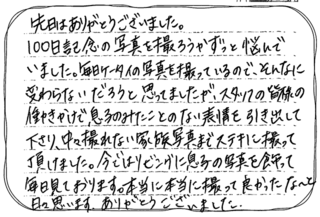 先日はありがとうございました。
100日記念の写真を撮ろうかずっと悩んで
いました。毎日ケータイの写真を撮っているので、そんなに
変わらないだろうと思ってましたが、スタッフの皆様の
働きかけで息子のみたことのない表情を引き出して
下さり、中々撮れない家族写真までステキに撮って
頂けました。今ではリビングに息子の写真を飾って
毎日見ております。本当に本当に撮って良かったな〜と
日々思います。ありがとうございました。